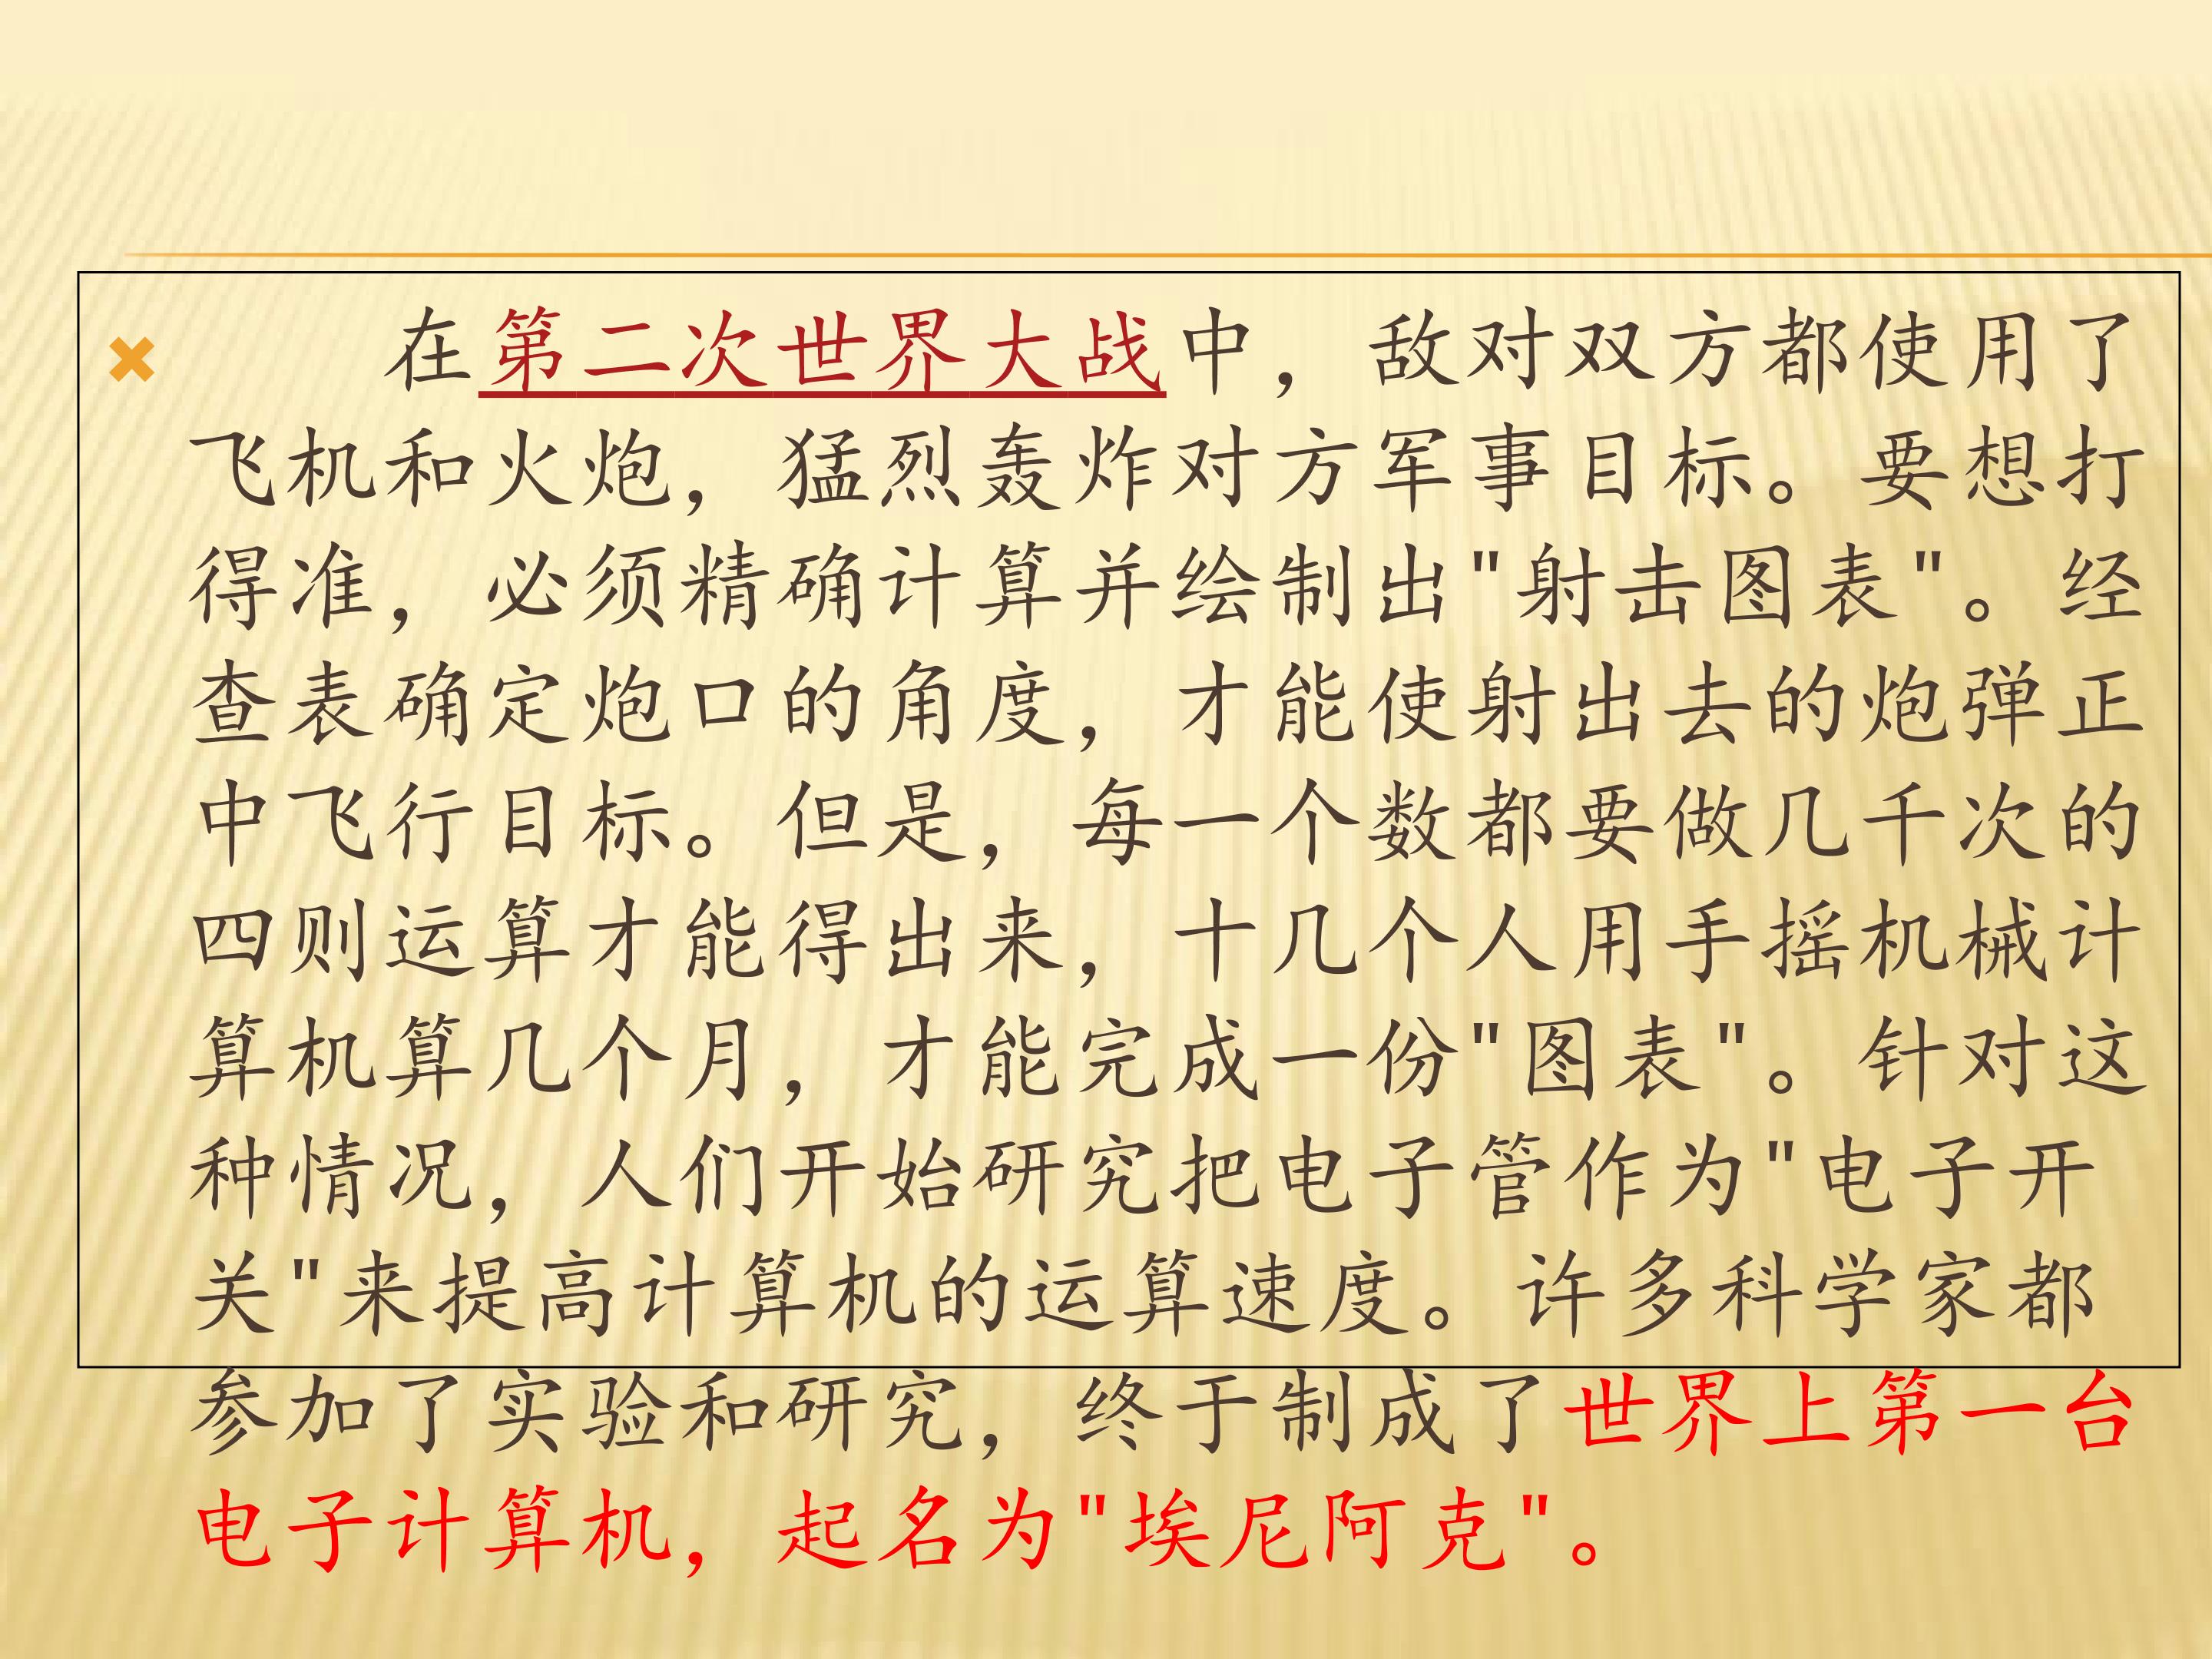 在第二次世界大战中，敌对双方都使用了
飞机和火炮，猛烈轰炸对方军事目标。要想打
得准，必须精确计算并绘制出"射击图表"。经
查表确定炮口的角度，才能使射出去的炮弹正
中飞行目标。但是，每一个数都要做几千次的
四则运算才能得出来，十几个人用手摇机械计
算机算几个月，才能完成一份"图表"。针对这
种情况，人们开始研究把电子管作为"电子开
关"来提高计算机的运算速度。许多科学家都
参加了实验和研究，终于制成了世界上第一台
电子计算机，起名为"埃尼阿克"。